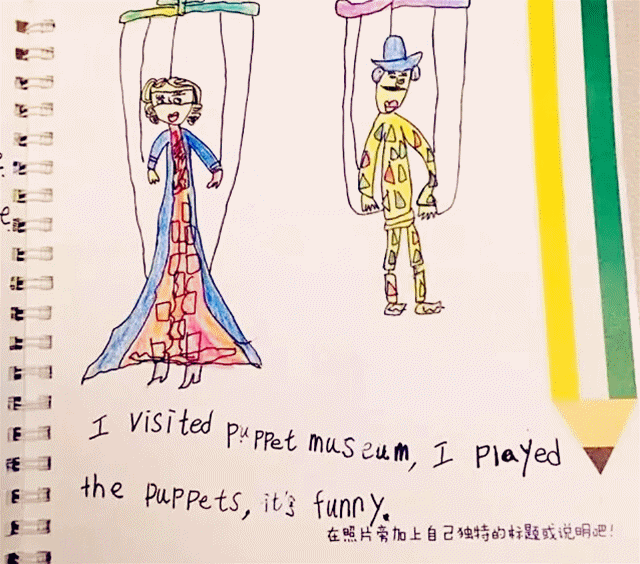 I visited puppet museum, I played
the puppets, it's funny.
在照片旁加上自己独特的标题或说明吧！